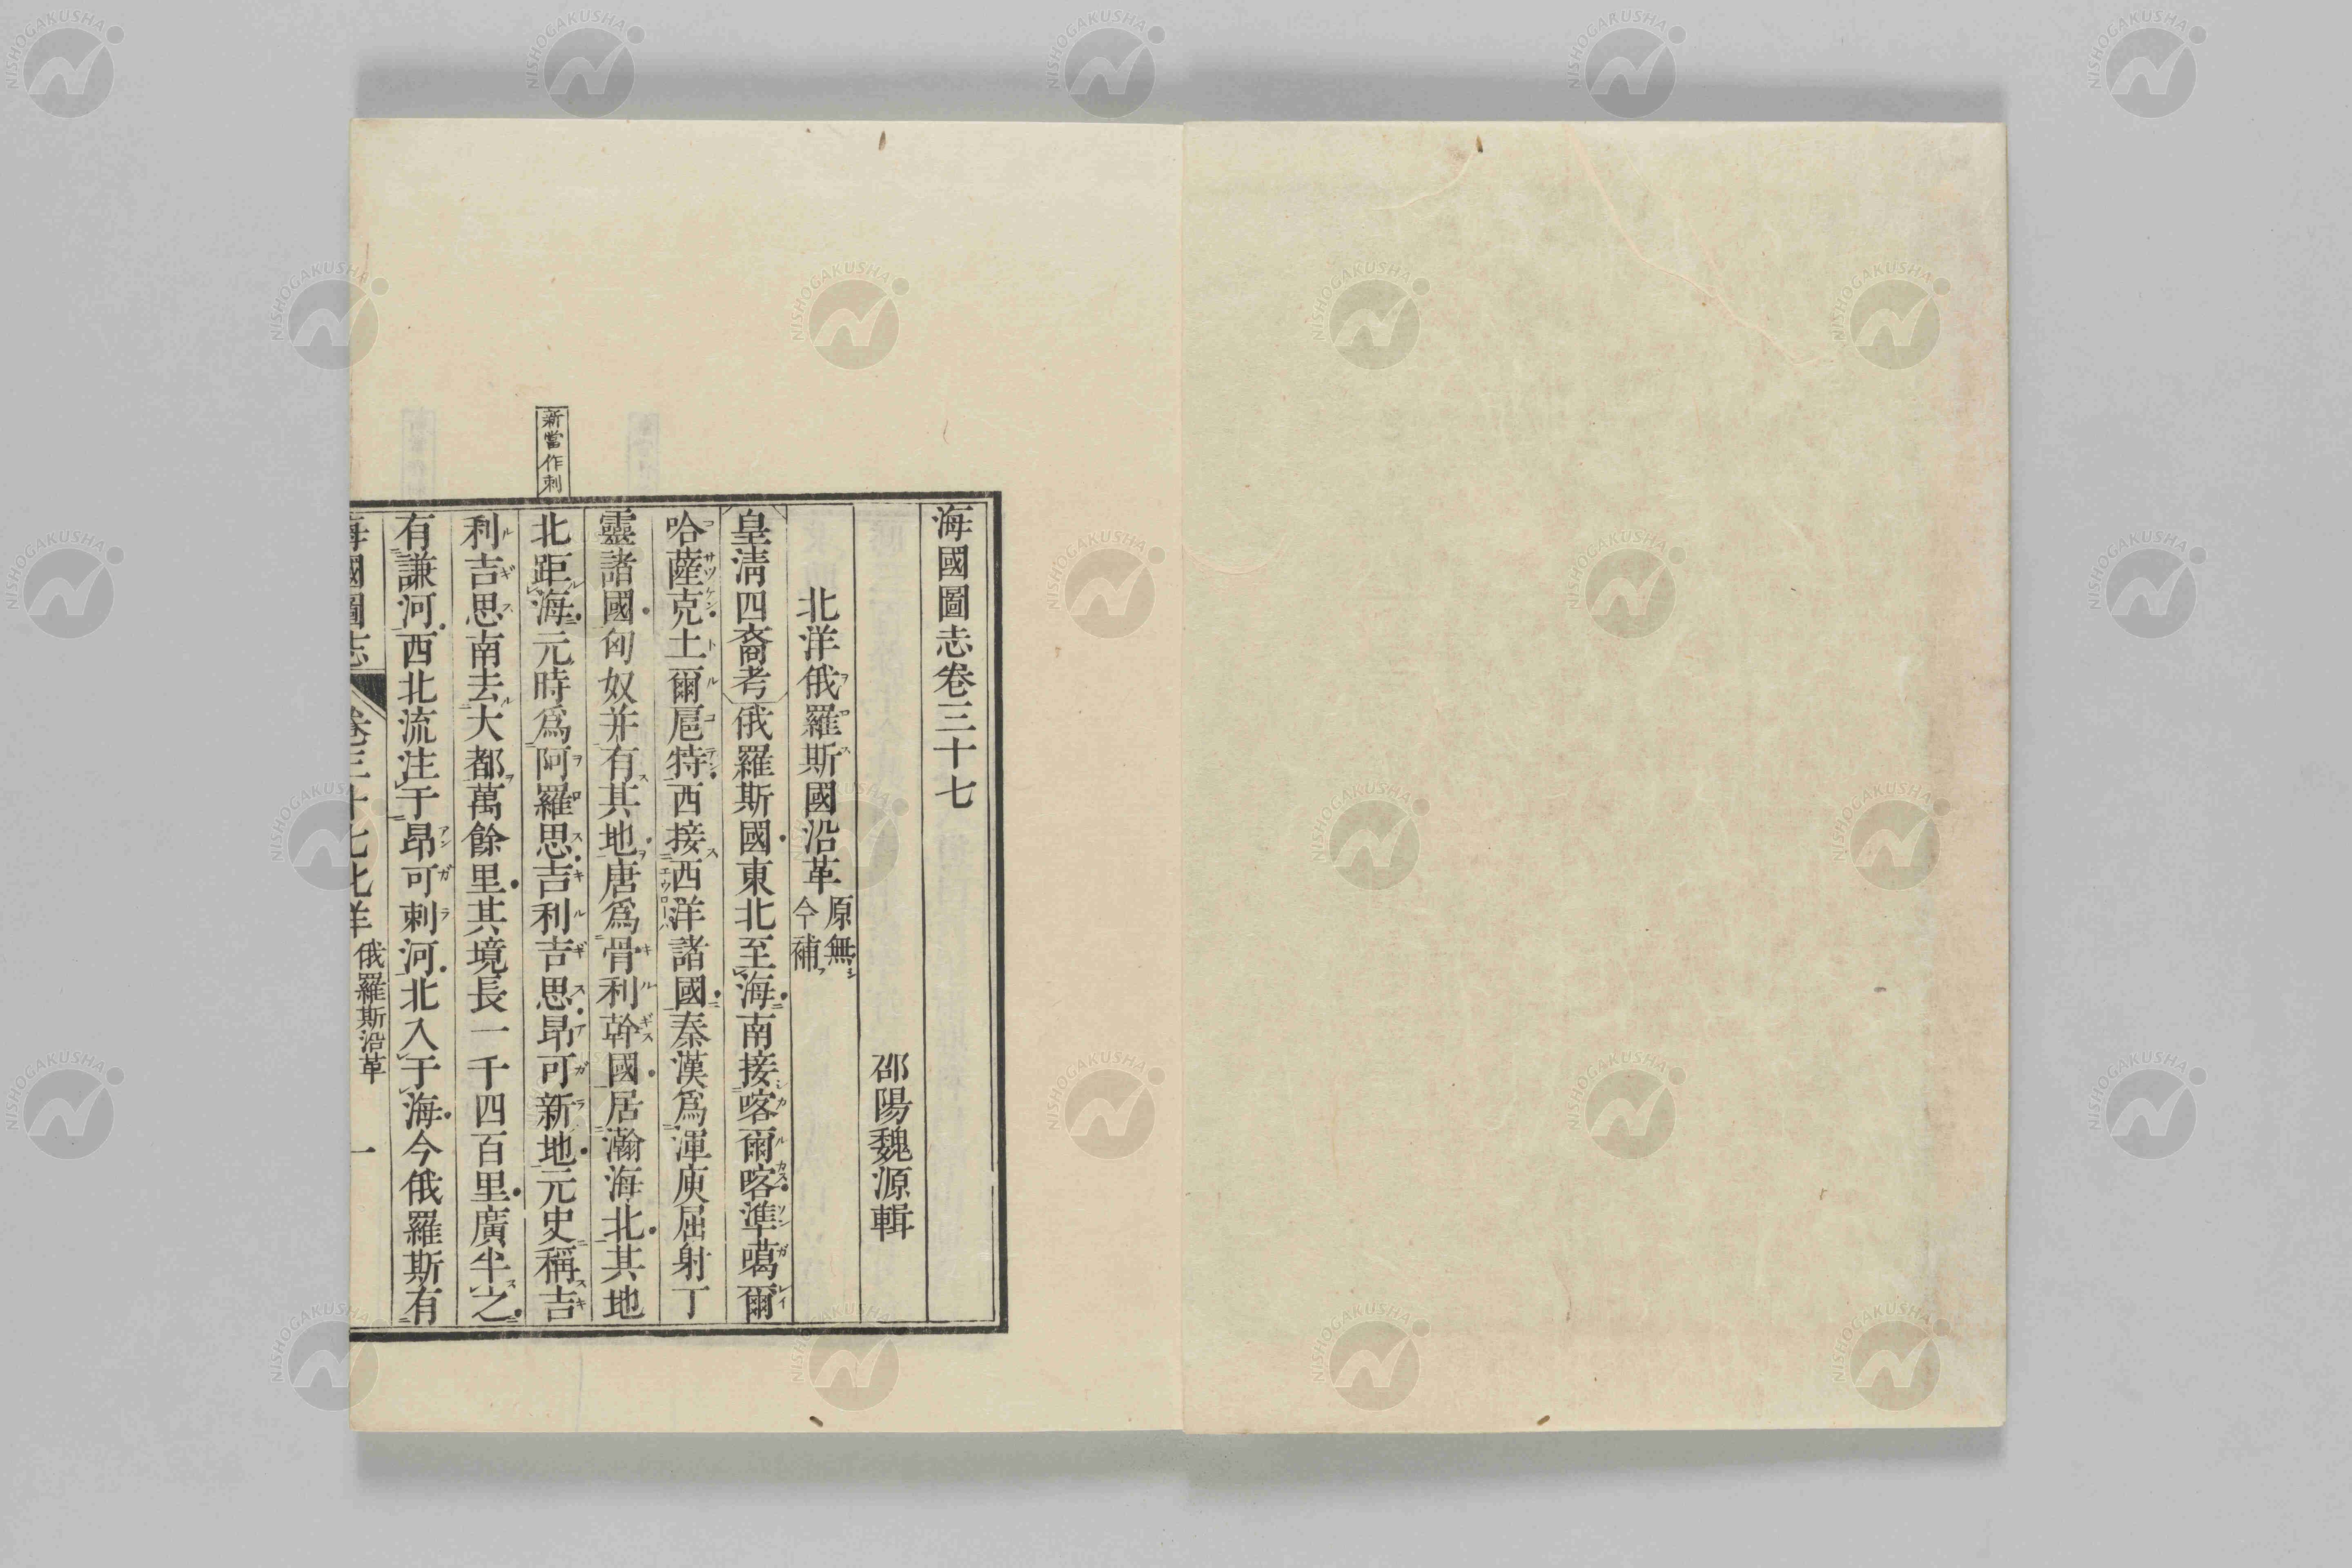 海國圖志卷三十七
邵陽魏源輯
北洋俄羅斯國沿革 原無今補
皇清四裔考 俄羅斯國東北至海南接喀爾喀準噶爾
哈薩克土爾扈特西接西洋諸國秦漢爲渾庾屈射丁
靈諸國匈奴并有其地唐爲骨利幹國居瀚海北其地
北距海元時爲阿羅思吉利吉思昂可新地元史稱吉
利吉思南去大都萬餘里其境長一千四百里廣半之
有謙河西北流注于昂可剌河北入于海今俄羅斯有
海國圖志 卷三十七 北洋 俄羅斯沿革 一
新當作刺
NISHOGAKUSHA